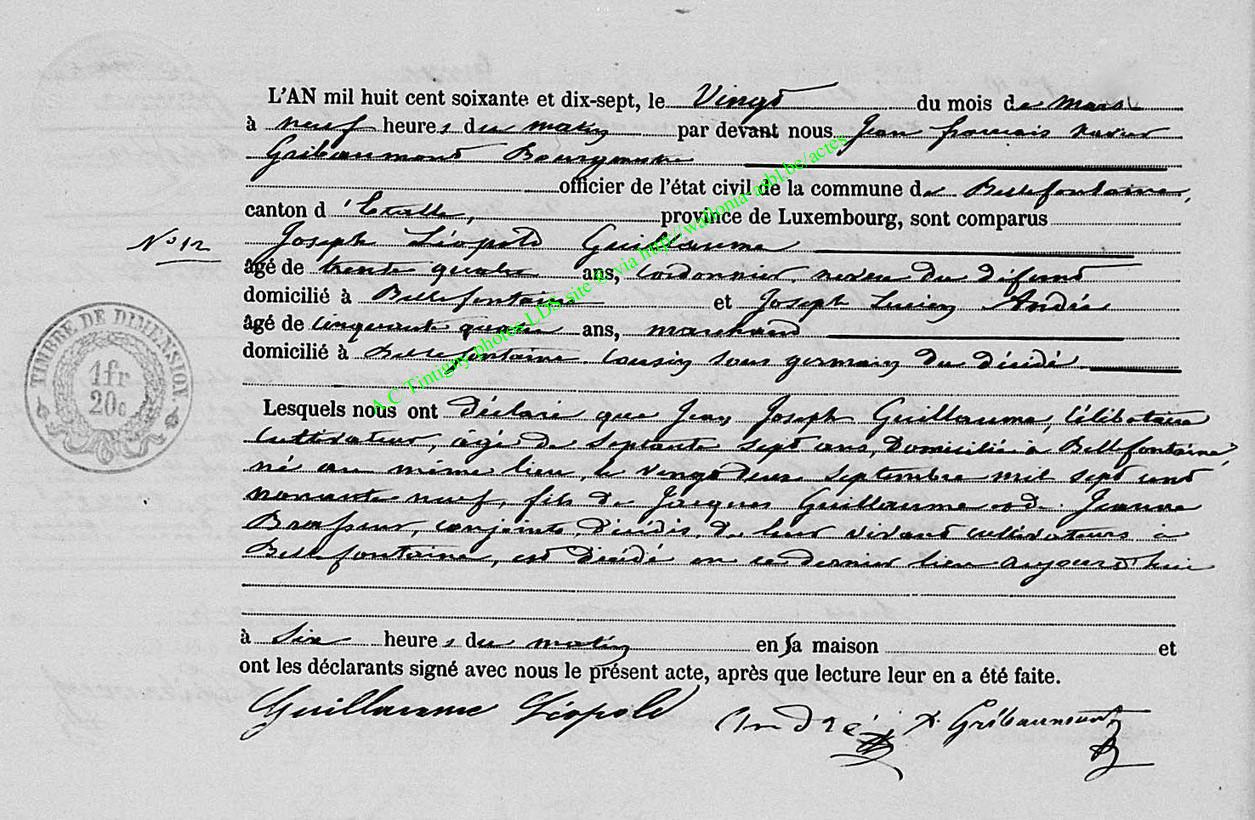 L'AN mil huit cent soixante et dix-sept, le Vingt du mois de Mars
à neuf heures du matin par devant nous Jean françois xavier
Gribaumont Bourgmestre
officier de l'état civil de la commune de Bellefontaine,
canton d'Etalle, province de Luxembourg, sont comparus
N° 12
Joseph Léopold Guillaume
âgé de trente quatre ans, cordonnier, neveu du défunt
domicilié à Bellefontaine et Joseph Lucien André
âgé de cinquante quatre ans, marchand
domicilié à Bellefontaine cousin sous germain du décédé
TIMBRE DE DIMENSION
1fr
20c
Lesquels nous ont déclaré que Jean Joseph Guillaume, célibataire
cultivateur, âgé de septante sept ans, domicilié à Bellefontaine,
né au même lieu, le vingt deux septembre mil sept cent
nonante neuf, fils de Jacques Guillaume et de Jeanne
Brasseur, conjoints, décédés, de leur vivant cultivateurs à
Bellefontaine, est décédé en ce dernier lieu aujourd'hui
à six heures du matin en sa maison et
ont les déclarants signé avec nous le présent acte, après que lecture leur en a été faite.
Guillaume Léopold André X. Gribaumont
A C Tintigny photos LDS site & via http://wallonia-asbl.be/actes